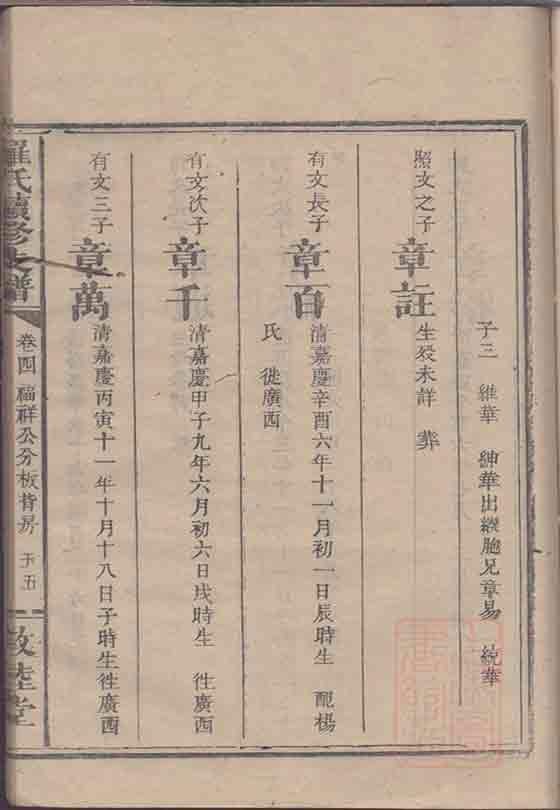 子三 維華 紳華出繼胞兄章易 統華
照文之子
章註
生殁未詳 葬
有文長子
章百
清嘉慶辛酉六年十一月初一日辰時生 配楊
氏 徙廣西
有文次子
章千
清嘉慶甲子九年六月初六日戌時生 徃廣西
有文三子
章萬
清嘉慶丙寅十一年十月十八日子時生徃廣西
羅氏續修支譜
卷四 福祥公分板背房
敦睦堂